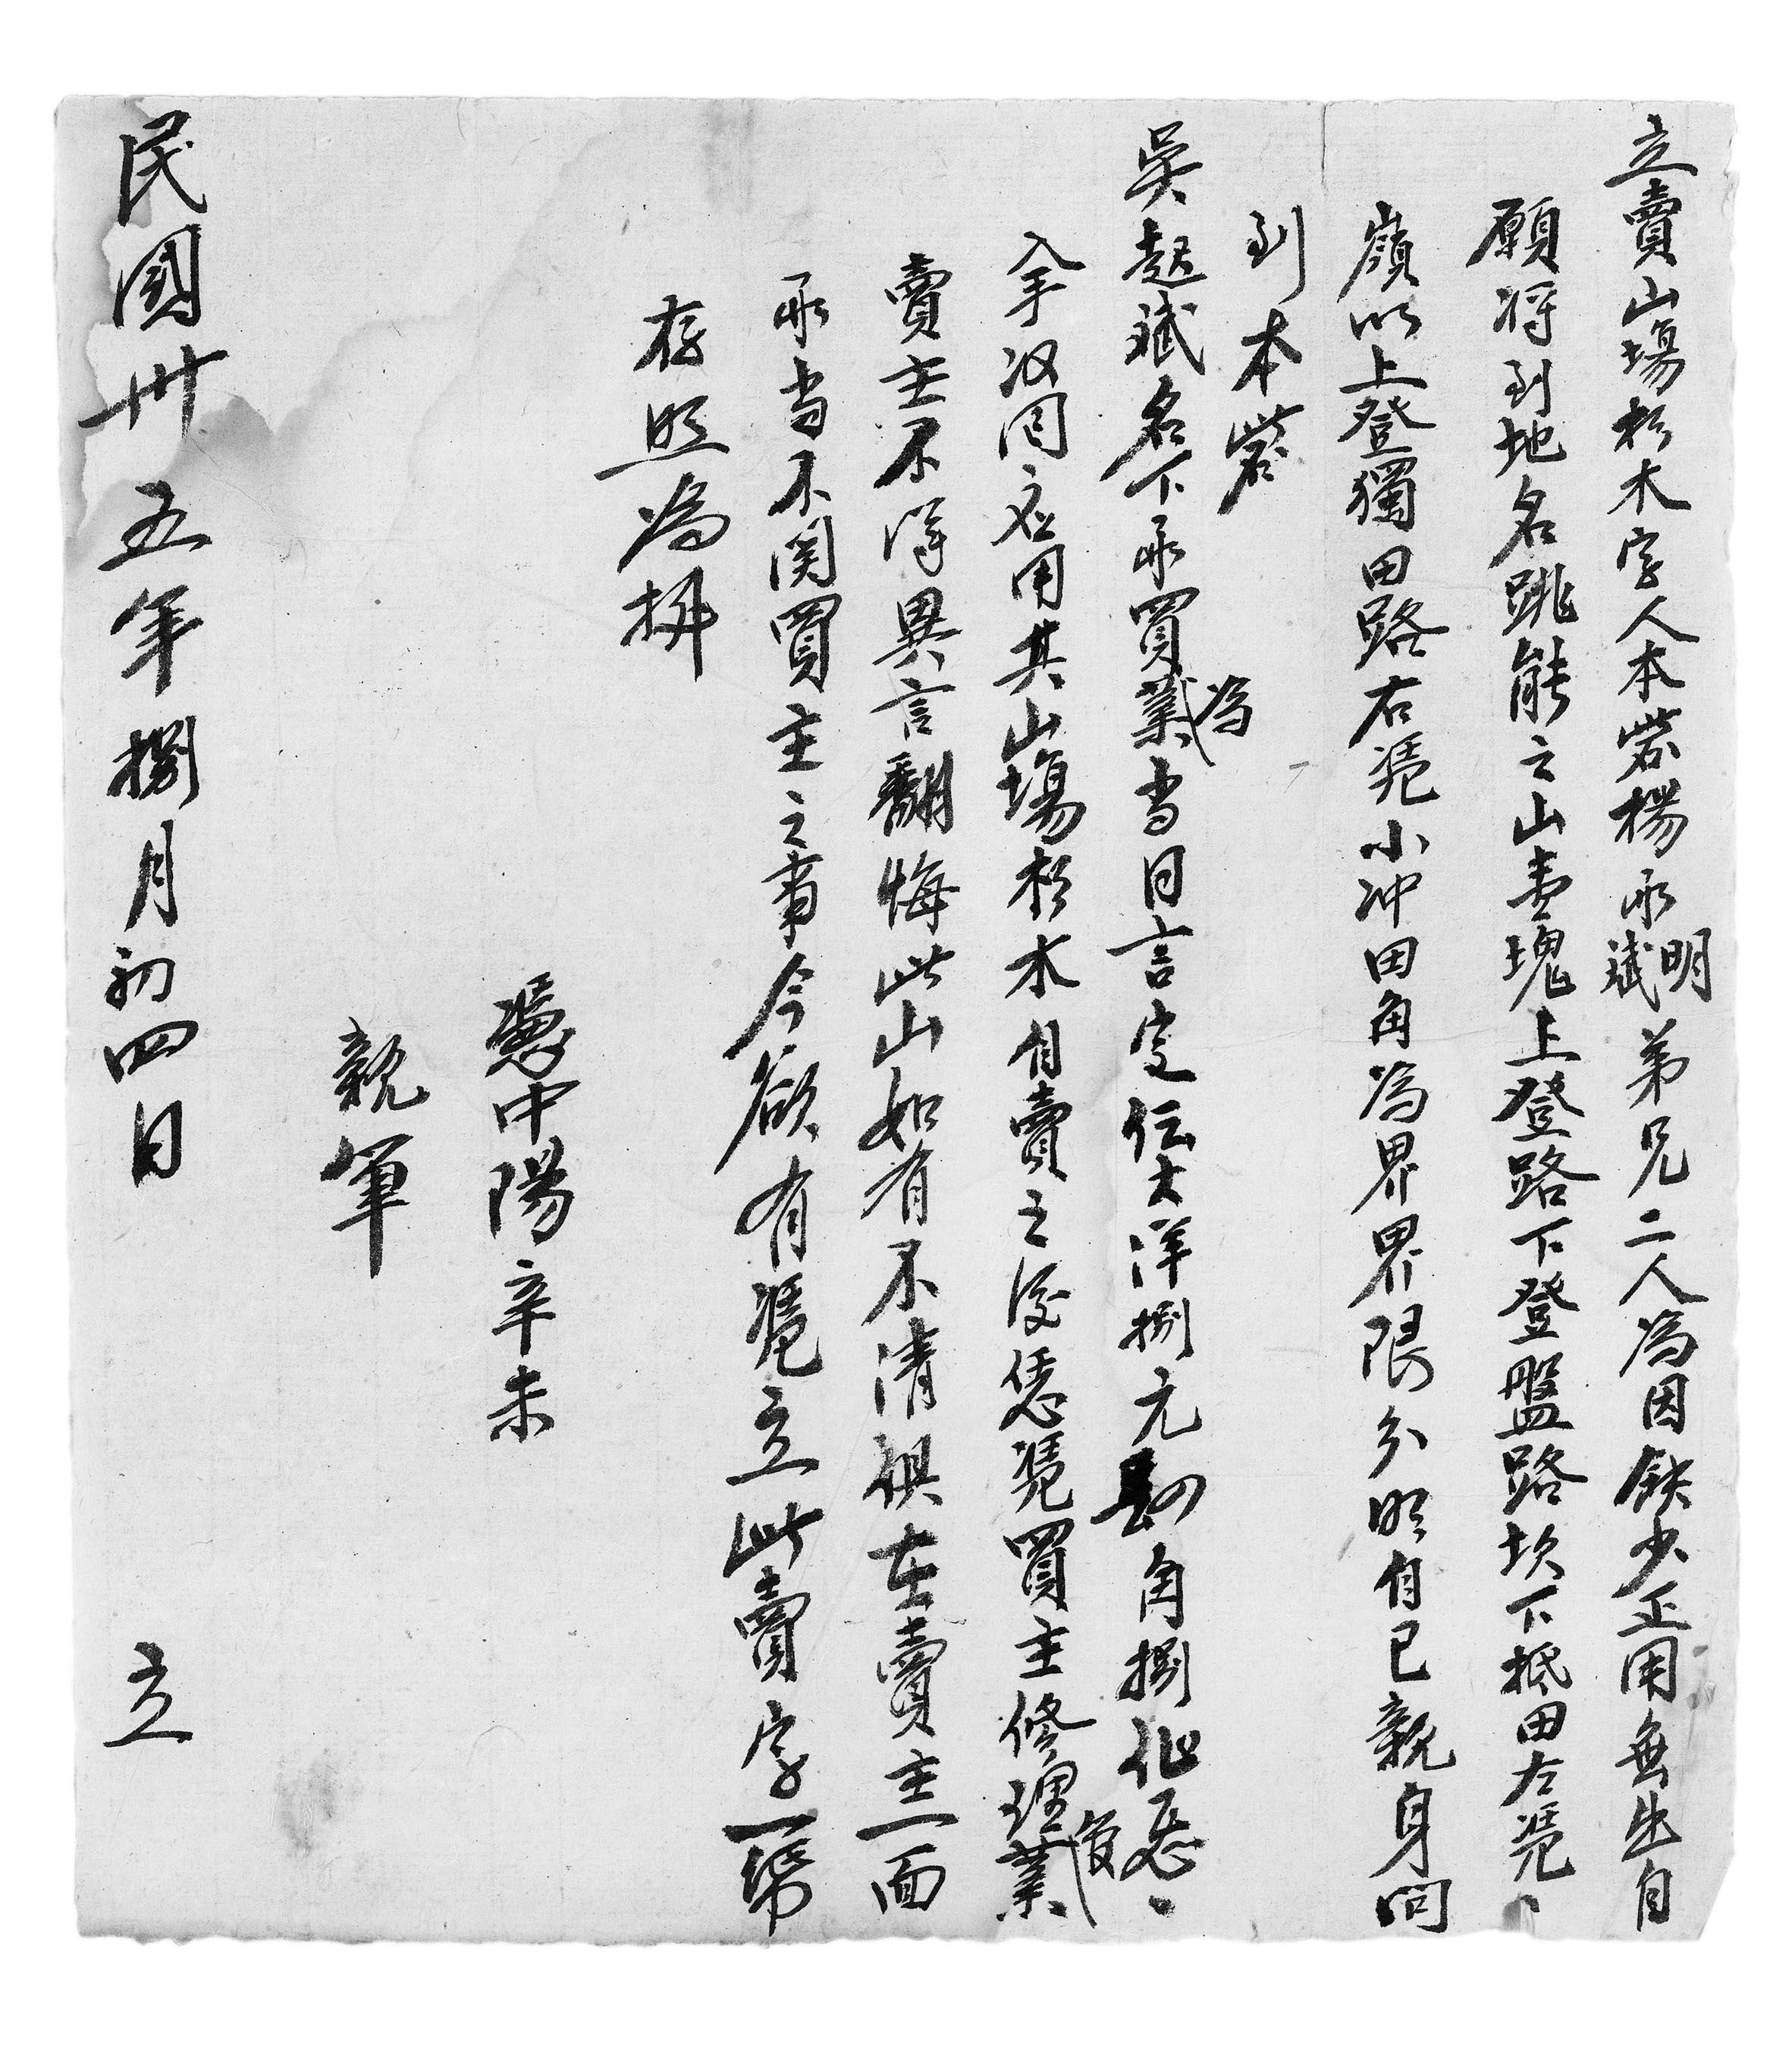 立賣山場杉木字人本砦楊承明斌弟兄二人為因缺少正用無出自
願将到地名跳能之山壹塊上登路下登盤路坎下抵田左凴
嶺以上登獨田路右凴小冲田角為界界限分明自已親身問
到本砦
吳起斌名下承買為業当日言定伝大洋捌元四角捌仙
入手汉回应用其山場杉木自賣之後恁凴買主修理管業
賣主不淂異言翻悔此山如有不清俱在賣主一面
承当不関買主之事今欲有凴立此賣字一帋
存照為㨿
憑中陽辛未
親筆
民國卅五年捌月初四日 立